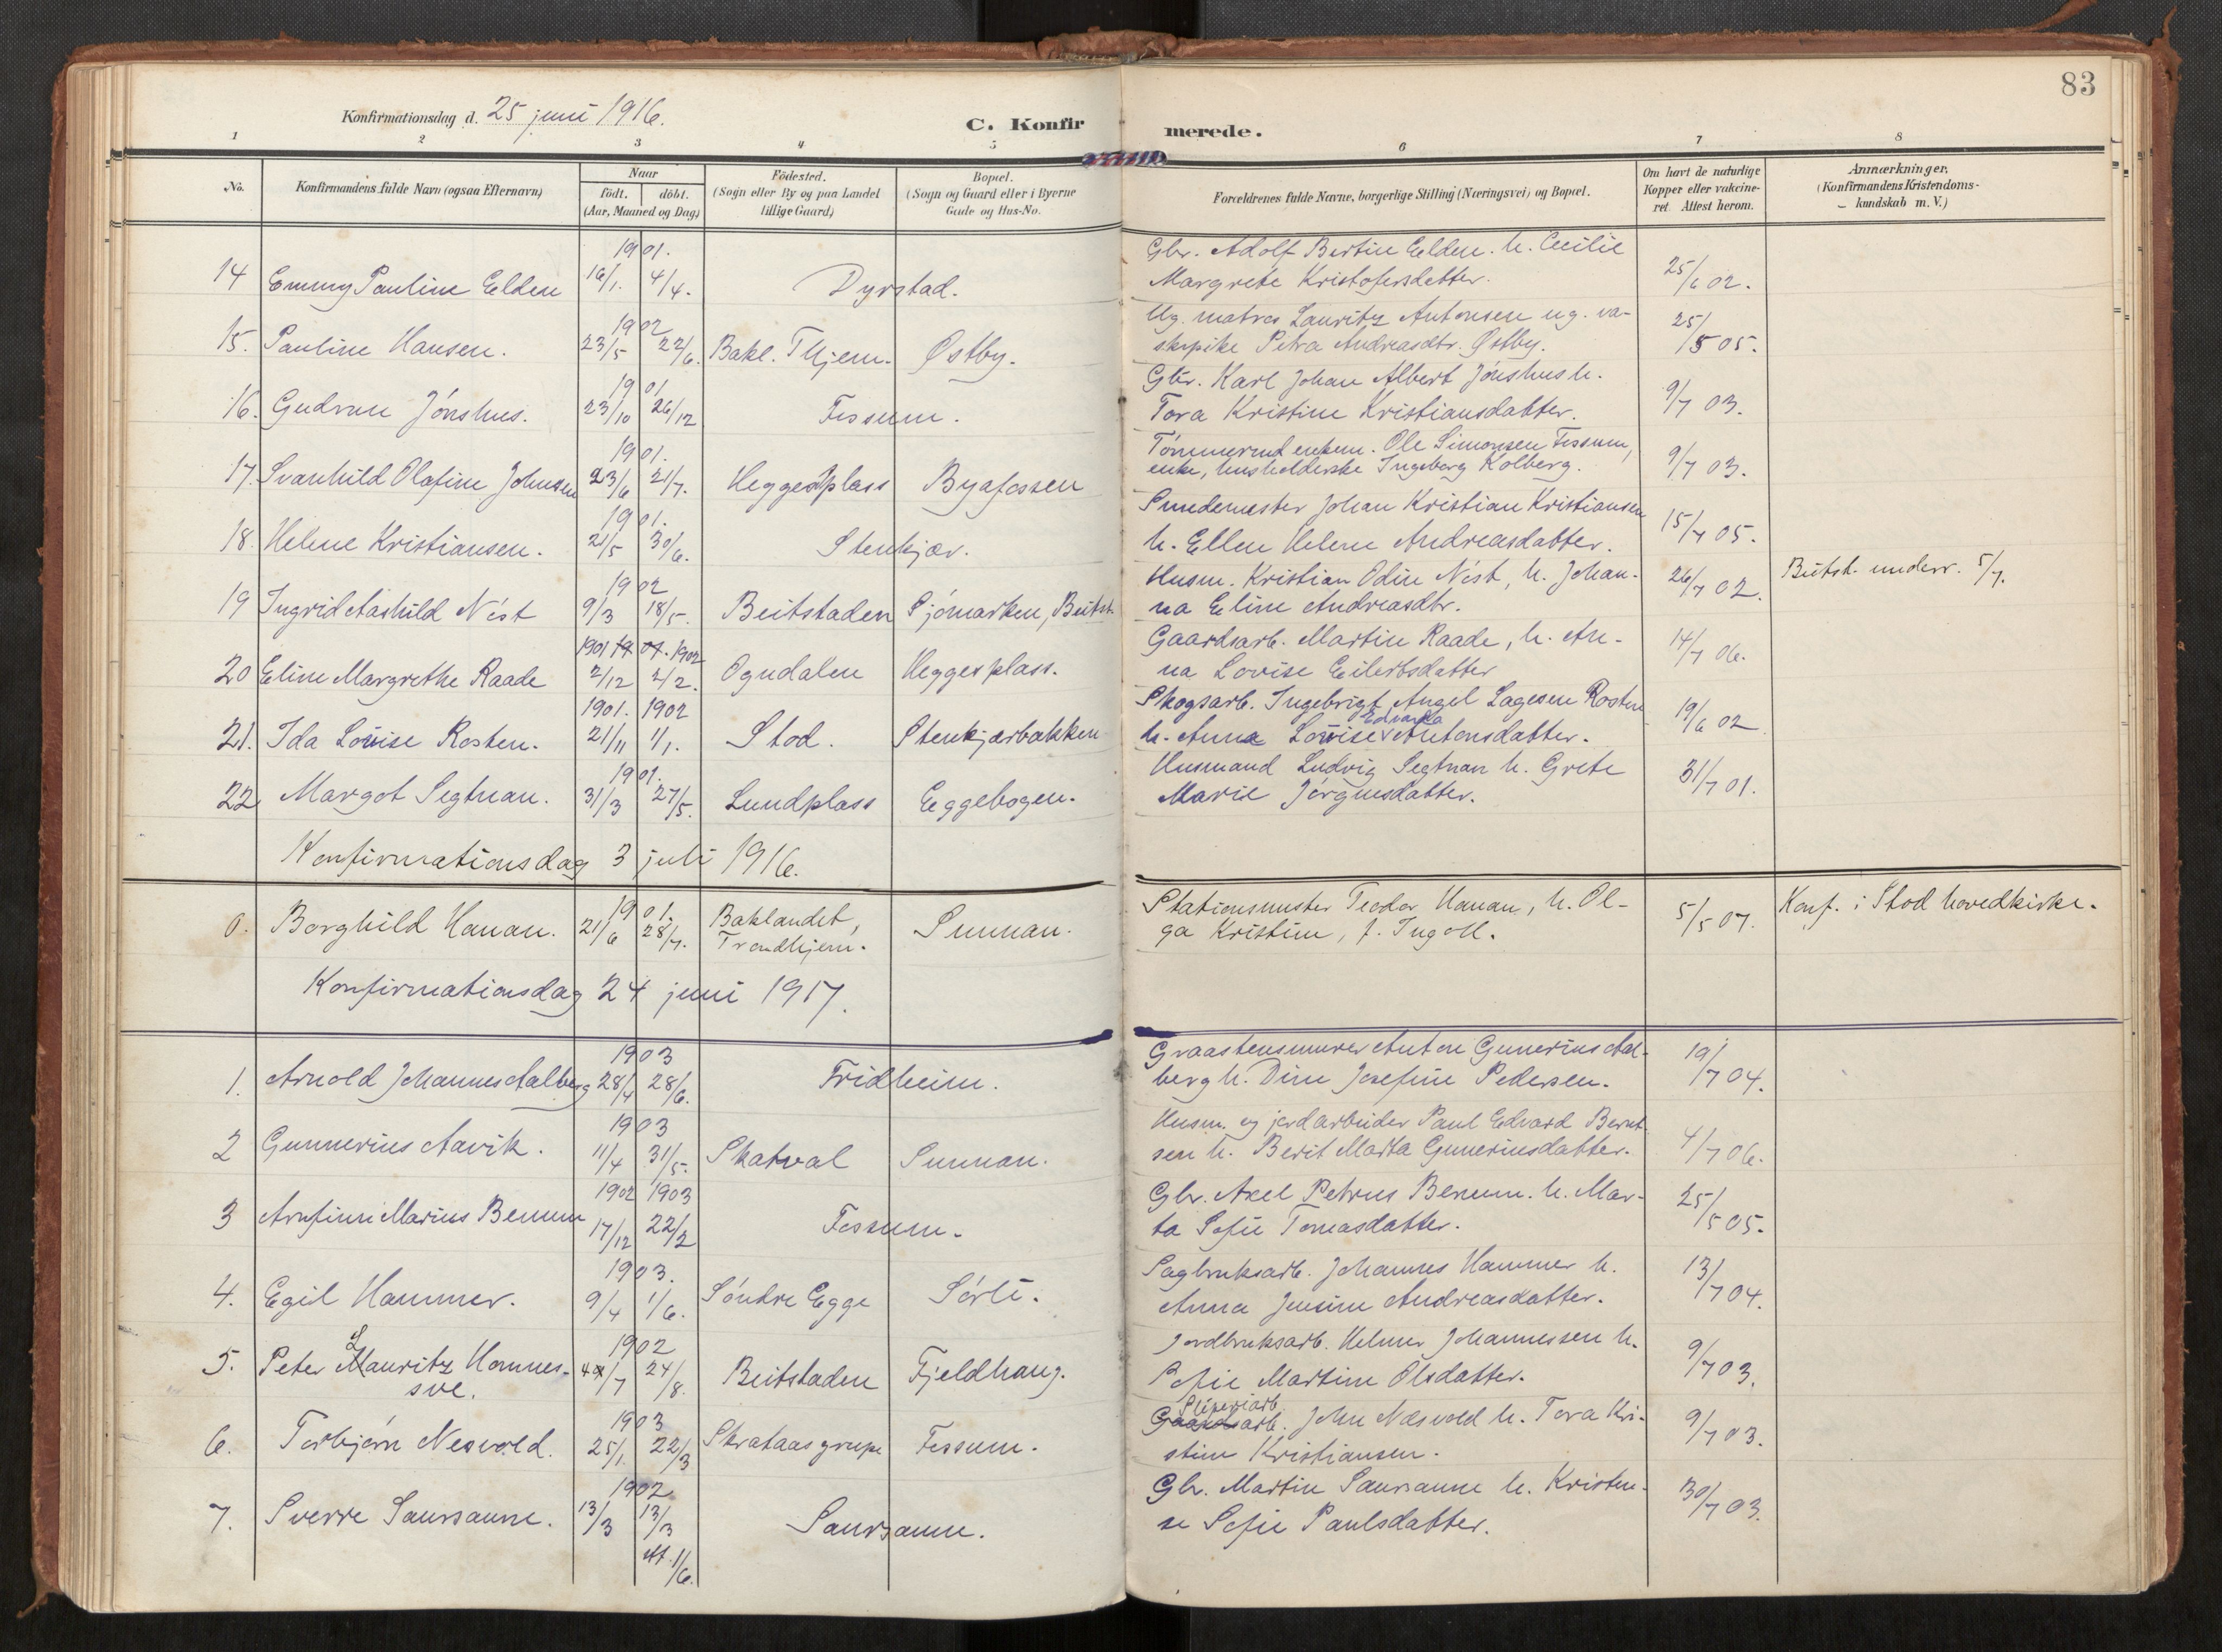 83
Konfirmationsdag d. 25 juni 1916.
C. Konfirmerede.
1 2 3 4 5 6 7 8
No.
Konfirmandens fulde Navn (ogsaa Efternavn)
Naar
födt. döbt.
(Aar, Maaned og Dag)
Födested.
(Sogn eller By og paa Landet
tillige Gaard)
Bopæl.
(Sogn og Gaard eller i Byerne
Gade og Hus-No.
Forældrenes fulde Navne, borgerlige Stilling (Næringsvei) og Bopæl.
Om havt de naturlige
Kopper eller vakcine-
ret. Attest herom.
Anmærkninger.
(Konfirmandens Kristendoms-
kundskab m. V.)
1901.
14 Emmy Pauline Elden 16/1. 4/4. Dyrstad. Gbr. Adolf Bertin Elden. h. Cecilie
Margrete Kristofersdatter. 25/6 02.
1902
15. Pauline Hansen. 23/5 22/6. Bakl. Thjem. Østby. Ug. matros Lauritz Antonsen ug. va-
skepike Petra Andreasdtr. Østby. 25/5 05.
1901
16. Gudrun Jónshus. 23/10 26/12 Fossum. Gbr. Karl Johan Albert Jónshus h.
Tora Kristine Kristiansdatter. 9/7 03.
1901.
17. Svanhild Olafine Johnsen 23/6 21/7. Heggesplass Byafossen Tömmermd enkem. Ole Simonsen Fossum,
enke, husholderske Ingeborg Kolberg. 9/7 03.
1901.
18. Helene Kristiansen. 21/5 30/6. Stenkjær. Smedemester Johan Kristian Kristiansen
h. Ellen Helene Andreasdatter. 15/7 05.
1902
19 Ingrid Aashild Nóst 9/3 18/5. Beitstaden Sjómarken, Beitst. Husm. Kristian Odin Nóst, h. Johan-
na Eline Andreasdtr. 26/7 02. Beitst. underr. 5/7.
1901 19 01. 1902
20 Eline Margrethe Raade 2/12 2/2. Ogndalen Heggesplass. Gaardsarb. Martin Raade, h. An-
na Lovise Eilertsdatter 14/7 06.
1901. 1902
21. Ida Lovise Rosten. 21/11 1/1. Stod. Stenkjærbakken Skogsarb. Ingebrigt Angel Lagesen Rosten
h. Anna Lovise Edvarda Antonsdatter. 19/6 02
1901.
22 Margot Segtnan. 31/3 27/5. Lundplass Eggebogen. Husmand Ludvig Segtnan h. Grete
Marie Jørginsdatter. 31/7 01.
Konfirmationsdag 3 juli 1916.
1901.
0. Borghild Hanan. 21/6 28/7. Baklandet,
Trondhjem. Sunnan. Stationsmester Teodor Hanan, h. Ol-
ga Kristine, f. Ingoll. 5/5 07. Konf. i Stod hovedkirke.
Konfirmationsdag 24 juni 1917.
1903
1. Arnold Johannes Aalberg 28/4 28/6. Fridheim. Graastensmurer Anton Gunerius Aal-
berg h. Dina Josefine Pedersen. 19/7 04.
1903
2 Gunnerius Aavik. 11/4 31/5. Skatval Sunnan. Husm. og jordarbeider Paul Edvard Bernt-
sen h. Berit Marta Gunneriusdatter. 4/7 06.
1902 1903
3 Arnfinn Marius Benum 17/12 22/2 Fossum. Gbr. Axel Petrus Benum. h. Mar-
ta Sofie Tomasdatter. 25/5 05.
1903.
4. Egil Hammer. 9/4 1/6. Sóndre Egge Sørli. Sagbruksarb. Johannes Hammer h.
Anna Jensine Andreasdatter. 13/7 04.
1902
5. Peter Lauritz Homnes-
sve. 4/7 24/8. Beitstaden Fjeldhaug. Jordbruksarb. Helmer Johannessen h.
Sofie Martine Olsdatter. 9/7 03.
1903
6. Torbjørn Nesvold. 25/1. 22/3 Skrataasgrupe Fossum. Sliperiarb.
Gaardsarb. John Næsvold h. Tora Kri-
stine Kristiansen. 9/7 03.
1902
7. Sverre Saursaune. 13/3 13/3 Saursaune. Gbr. Martin Saursaune h. Kristen-
se Sofie Paulsdatter. 30/7 03.
st. 1/6.